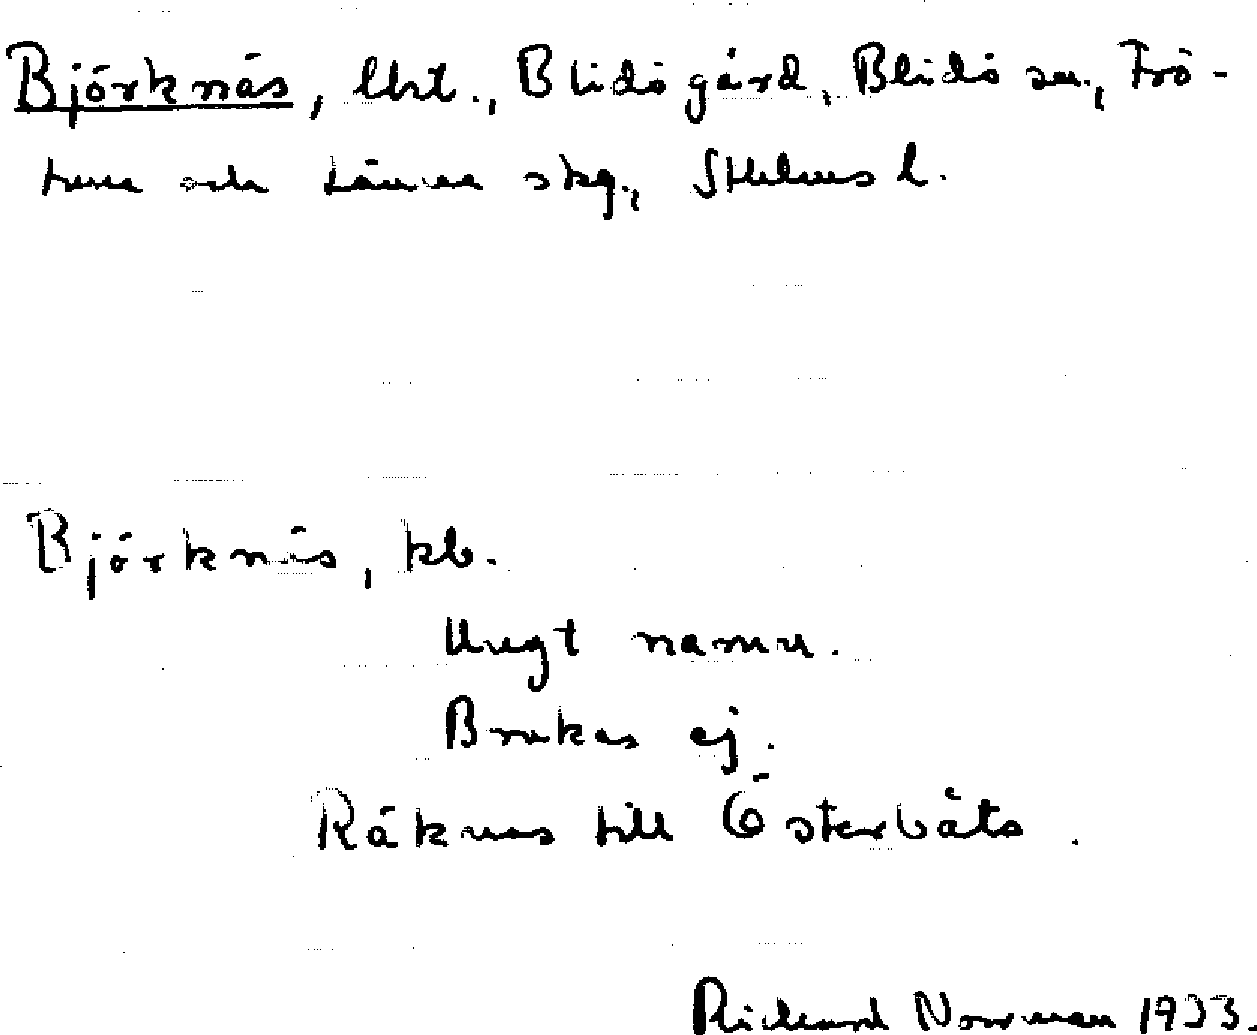 Björknäs, lht., Blidö gård, Blidö sn., Frö-
tuna och Länna skg., Sthlms l.
Björknäs, kb.
Ungt namn.
Brukas ej.
Räknas till Österbåts.
Richard Norrman 1933.